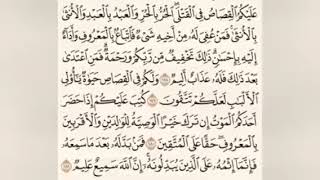 عَلَيْكُمُ ٱلْقِصَاصُ فِى ٱلْقَتْلَى ٱلْحُرُّ بِٱلْحُرِّ وَٱلْعَبْدُ بِٱلْعَبْدِ وَٱلْأُنثَىٰ
بِٱلْأُنثَىٰ فَمَنْ عُفِىَ لَهُۥ مِنْ أَخِيهِ شَىْءٌ فَٱتِّبَاعٌۢ بِٱلْمَعْرُوفِ وَأَدَآءٌ
إِلَيْهِ بِإِحْسَٰنٍ ذَٰلِكَ تَخْفِيفٌ مِّن رَّبِّكُمْ وَرَحْمَةٌ فَمَنِ ٱعْتَدَىٰ
بَعْدَ ذَٰلِكَ فَلَهُۥ عَذَابٌ أَلِيمٌ وَلَكُمْ فِى ٱلْقِصَاصِ حَيَوٰةٌ يَٰٓأُو۟لِى
ٱلْأَلْبَٰبِ لَعَلَّكُمْ تَتَّقُونَ كُتِبَ عَلَيْكُمْ إِذَا حَضَرَ
أَحَدَكُمُ ٱلْمَوْتُ إِن تَرَكَ خَيْرًا ٱلْوَصِيَّةُ لِلْوَٰلِدَيْنِ وَٱلْأَقْرَبِينَ
بِٱلْمَعْرُوفِ حَقًّا عَلَى ٱلْمُتَّقِينَ فَمَنۢ بَدَّلَهُۥ بَعْدَ مَا سَمِعَهُۥ
فَإِنَّمَآ إِثْمُهُۥ عَلَى ٱلَّذِينَ يُبَدِّلُونَهُۥٓ إِنَّ ٱللَّهَ سَمِيعٌ عَلِيمٌ